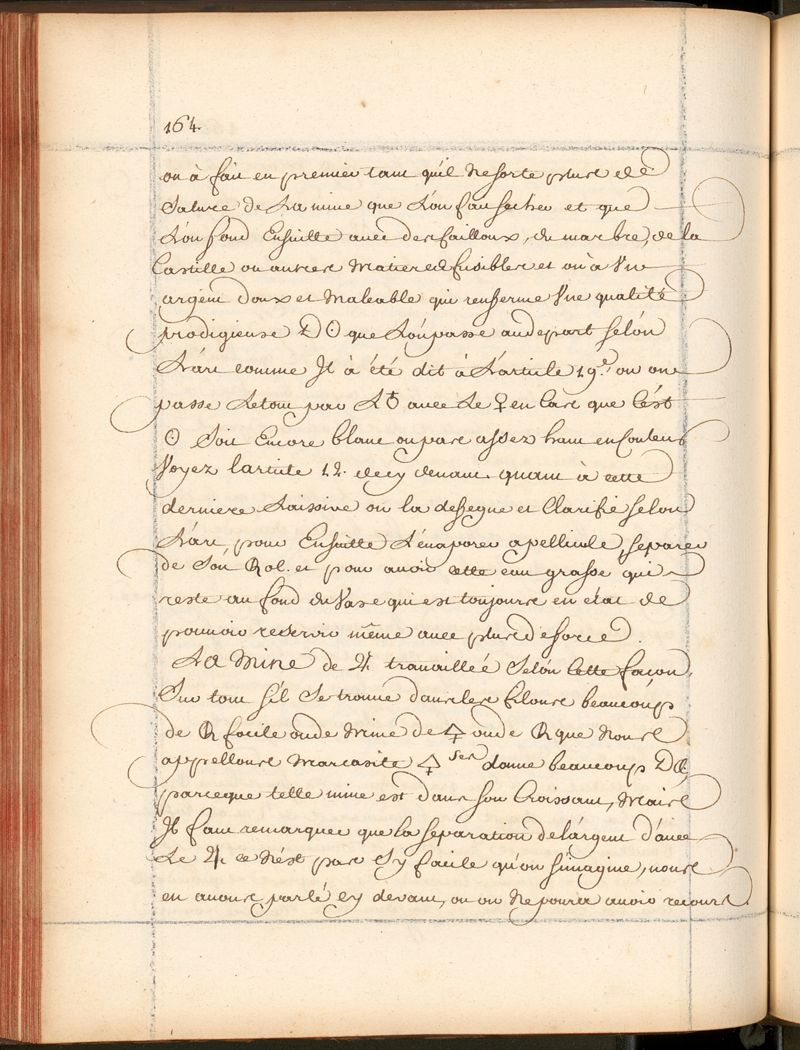 164.
on à fait en premier tant qu'il ne sorte plus de
Saluce de La mine que L'on fait secher et que
L'on fond Ensuitte avec des cailloux, du marbre, de la
Castille ou autres Matieres fusibles et on à Vn
argent doux et Maleable qui renferme Vne qualité
prodigieuse D ☉ que L'on passe au depart selon
L'art comme Il à été dit à L'article 19.e ou on
passe Letout par L♁ avec Le ♀ en cas que C'est
☉ Soit Encore blanc ou pas assez haut en Couleur
Voyez l'article 12. decy devant. quant à cette
derniere Laissive on la defegue et Clarifie selon
L'art, pour Ensuitte L'evaporer a pellicule, separer
de Son Rol. et pour avoir cette eau grasse qui
reste au fond du Vase qui est toujours en état de
pouvoir reservir même avec plus de force.
La Mine de ♃ travailleé Selon Cette façon,
Sur tout s'il Se trouve dans les filons beaucoup
de R facile ou de Mine de 🜍 ou de R que Nous
appellons Marcasite 🜍 ser donne beaucoup D ☾
parceque telle mine est dans son Croissant, Mais
Il faut remarquer que la separation de l'argent d'avec
Le ♃ ce n'est pas sy facile qu'on s'imagine, nous
en avons parlé cy devant, ou on Ne pourra avoir recours